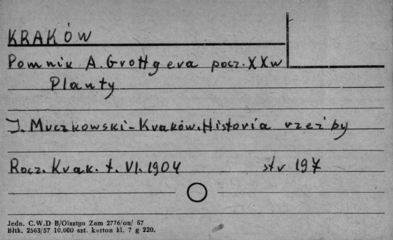 KRAKÓW
Pomnik A. Grottgera pocz. XXw
Planty
J. Muczkowski - Kraków. Historia rzeźby
Rocz. Krak. t. VI. 1904 str 197
Jedn. C.W.D B/Olsztyn Zam 2776/on/ 57
Błtk. 2563/57 10.000 szt. karton kl. 7 g 220.